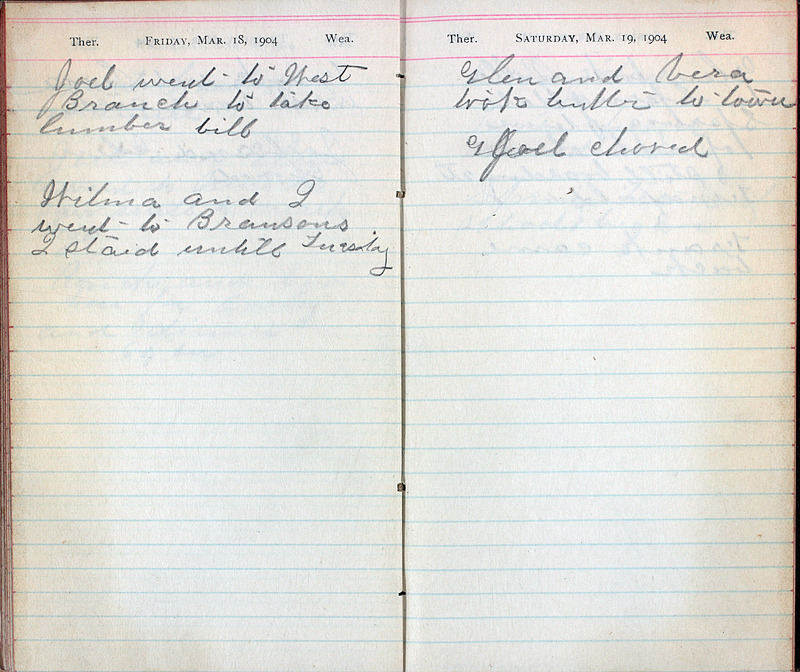 Ther. FRIDAY, MAR. 18, 1904 Wea.
Joel went to West
Branch to take
lumber bill
Wilma and I
went to Bransons
I staid untill Tuesday
Ther. SATURDAY, MAR. 19, 1904 Wea.
Glen and Vera
took butter to town
Joel chored